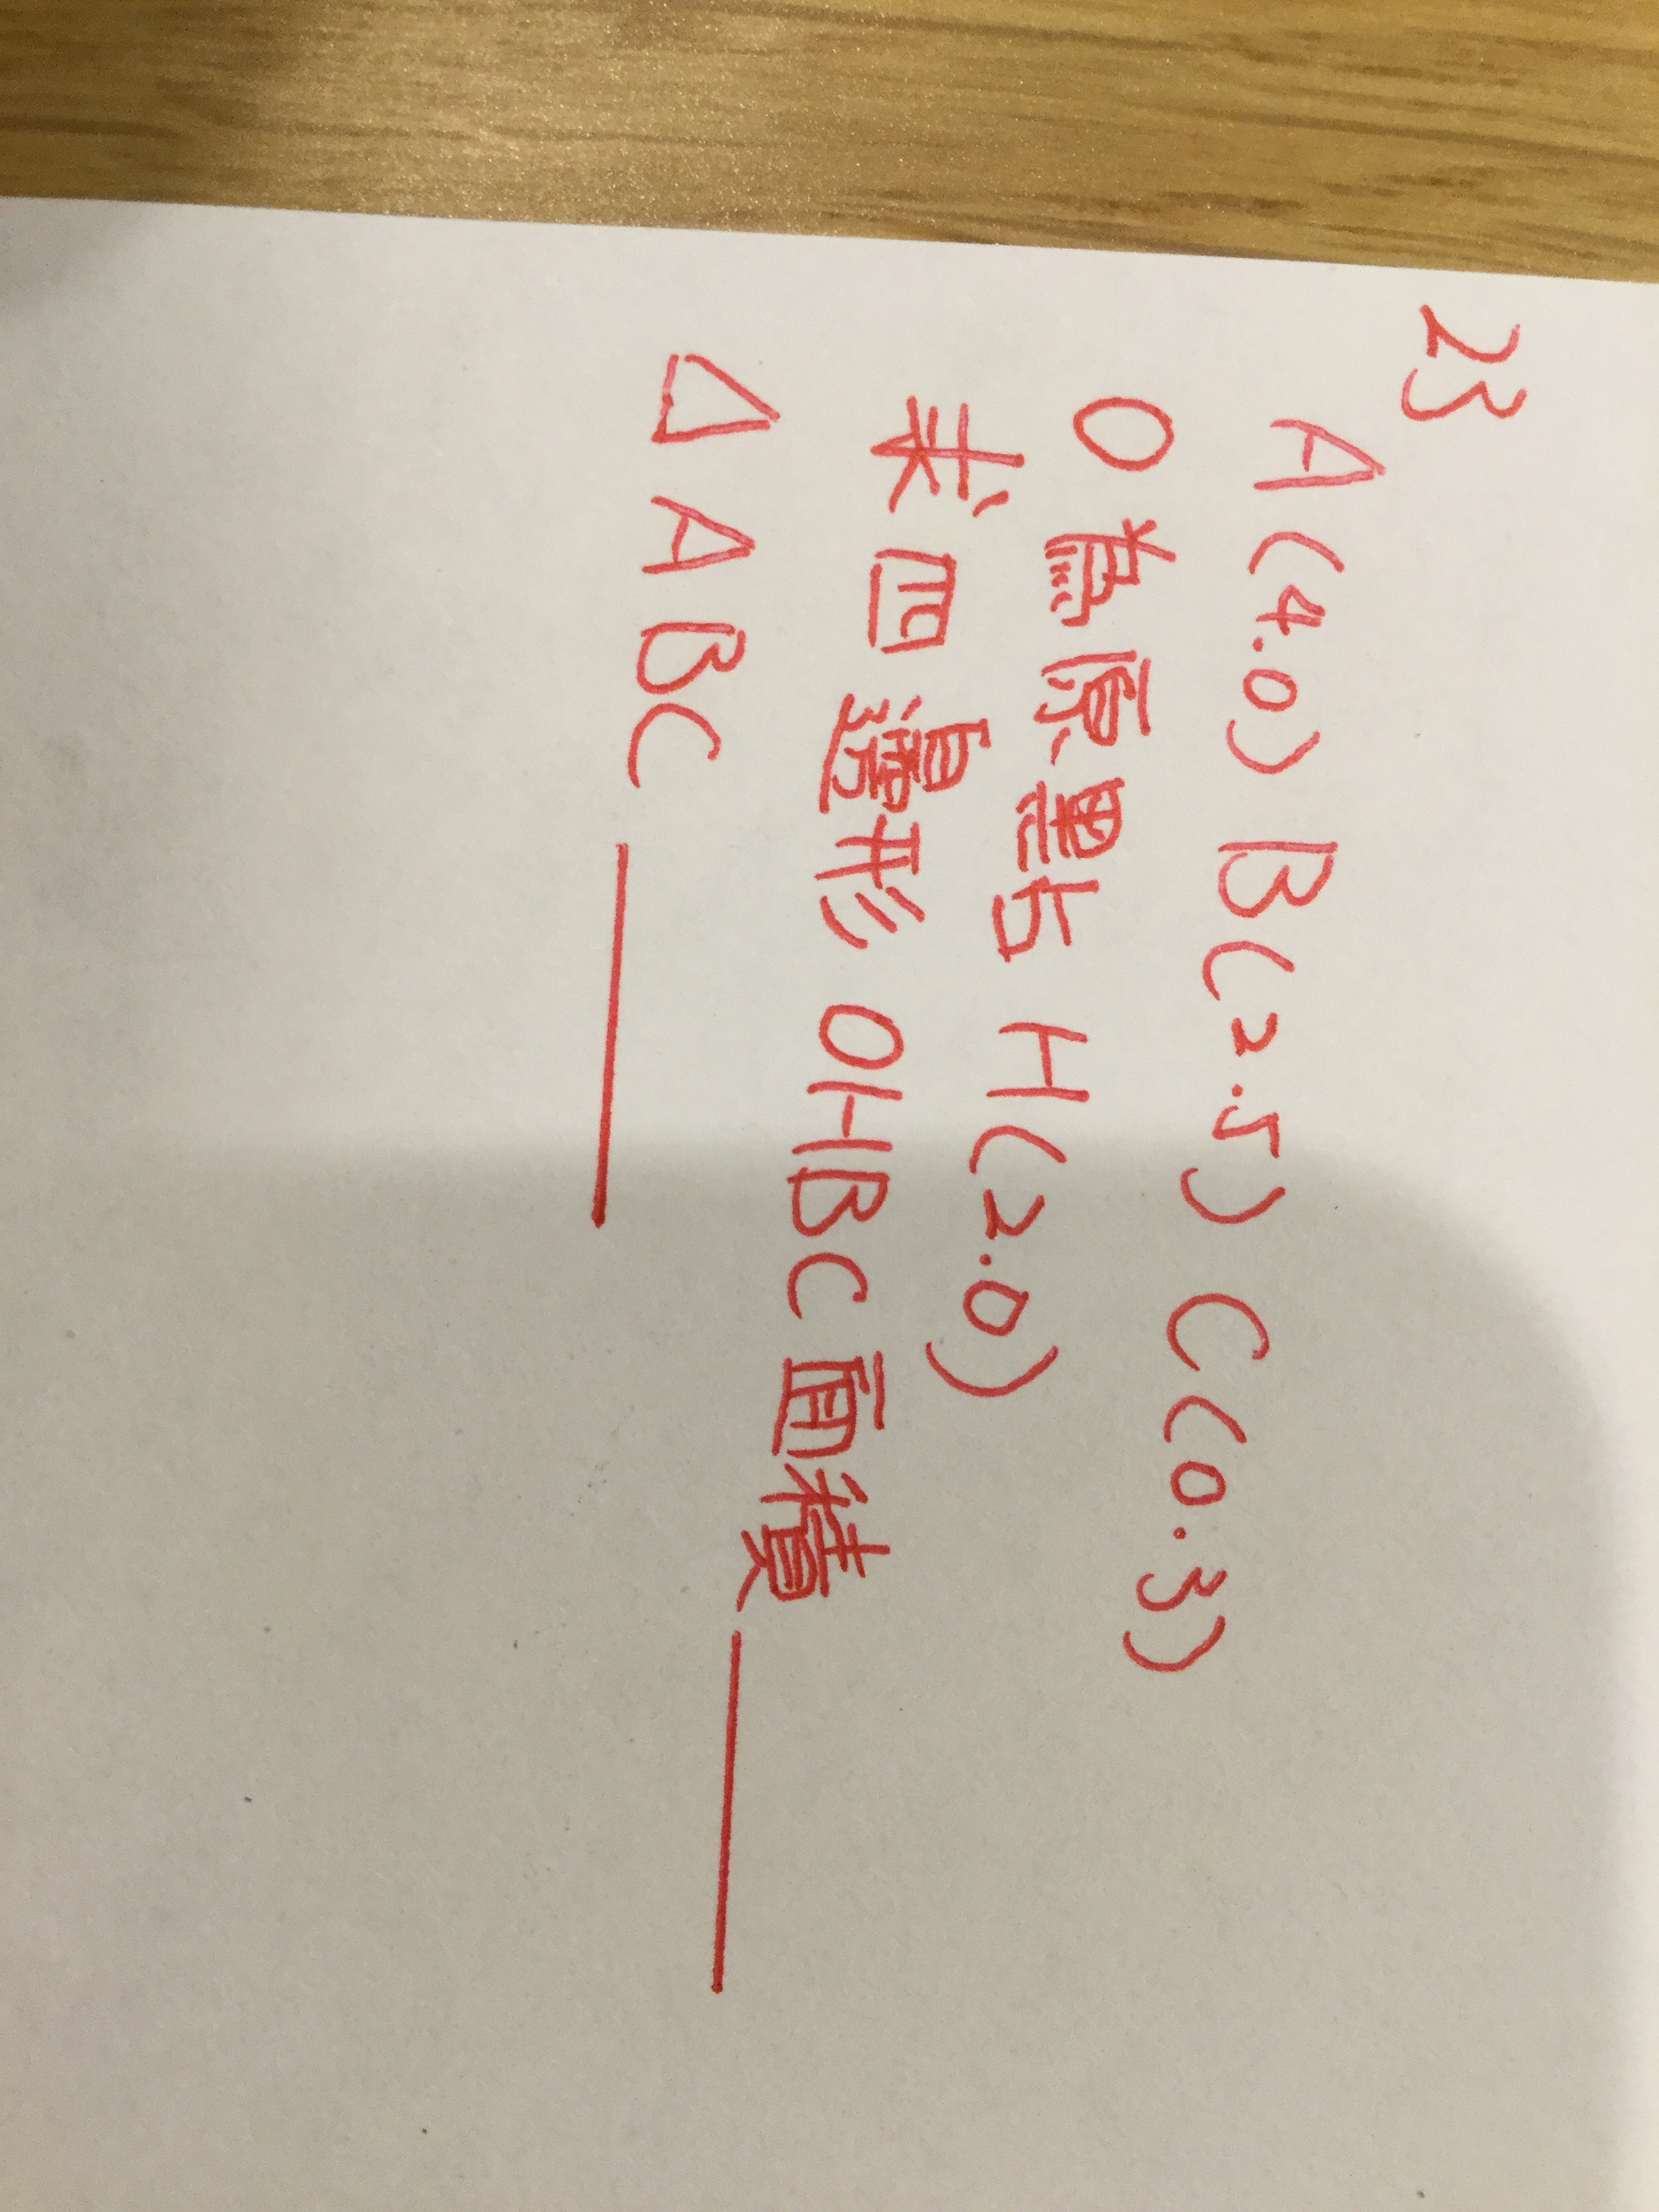 23
A(4.0) B(2.5) C(0.3)
O為原點 H(2.0)
求四邊形OHBC面積____
△ABC____